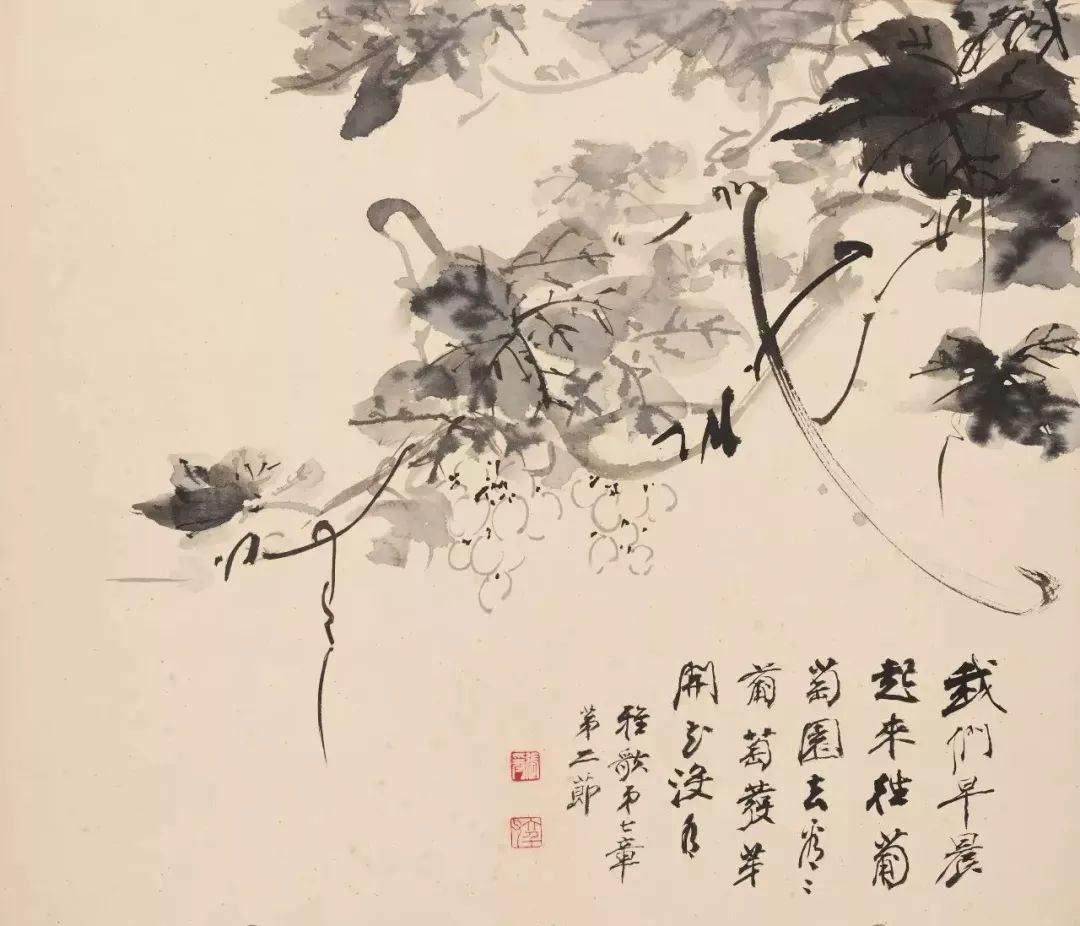 我們早晨
起來往葡
萄園去看﹕
葡萄發芽
開花沒有
雅歌第七章
第二節